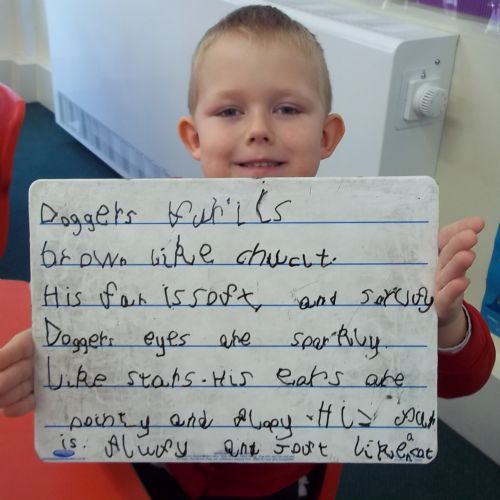 Doggers fur is
brown like chwat.
His far is soft, and
Doggers eyes are sparkly.
Like stars. His ears are
pointy and flopy. His fur
is fluwfy and soft like a cat